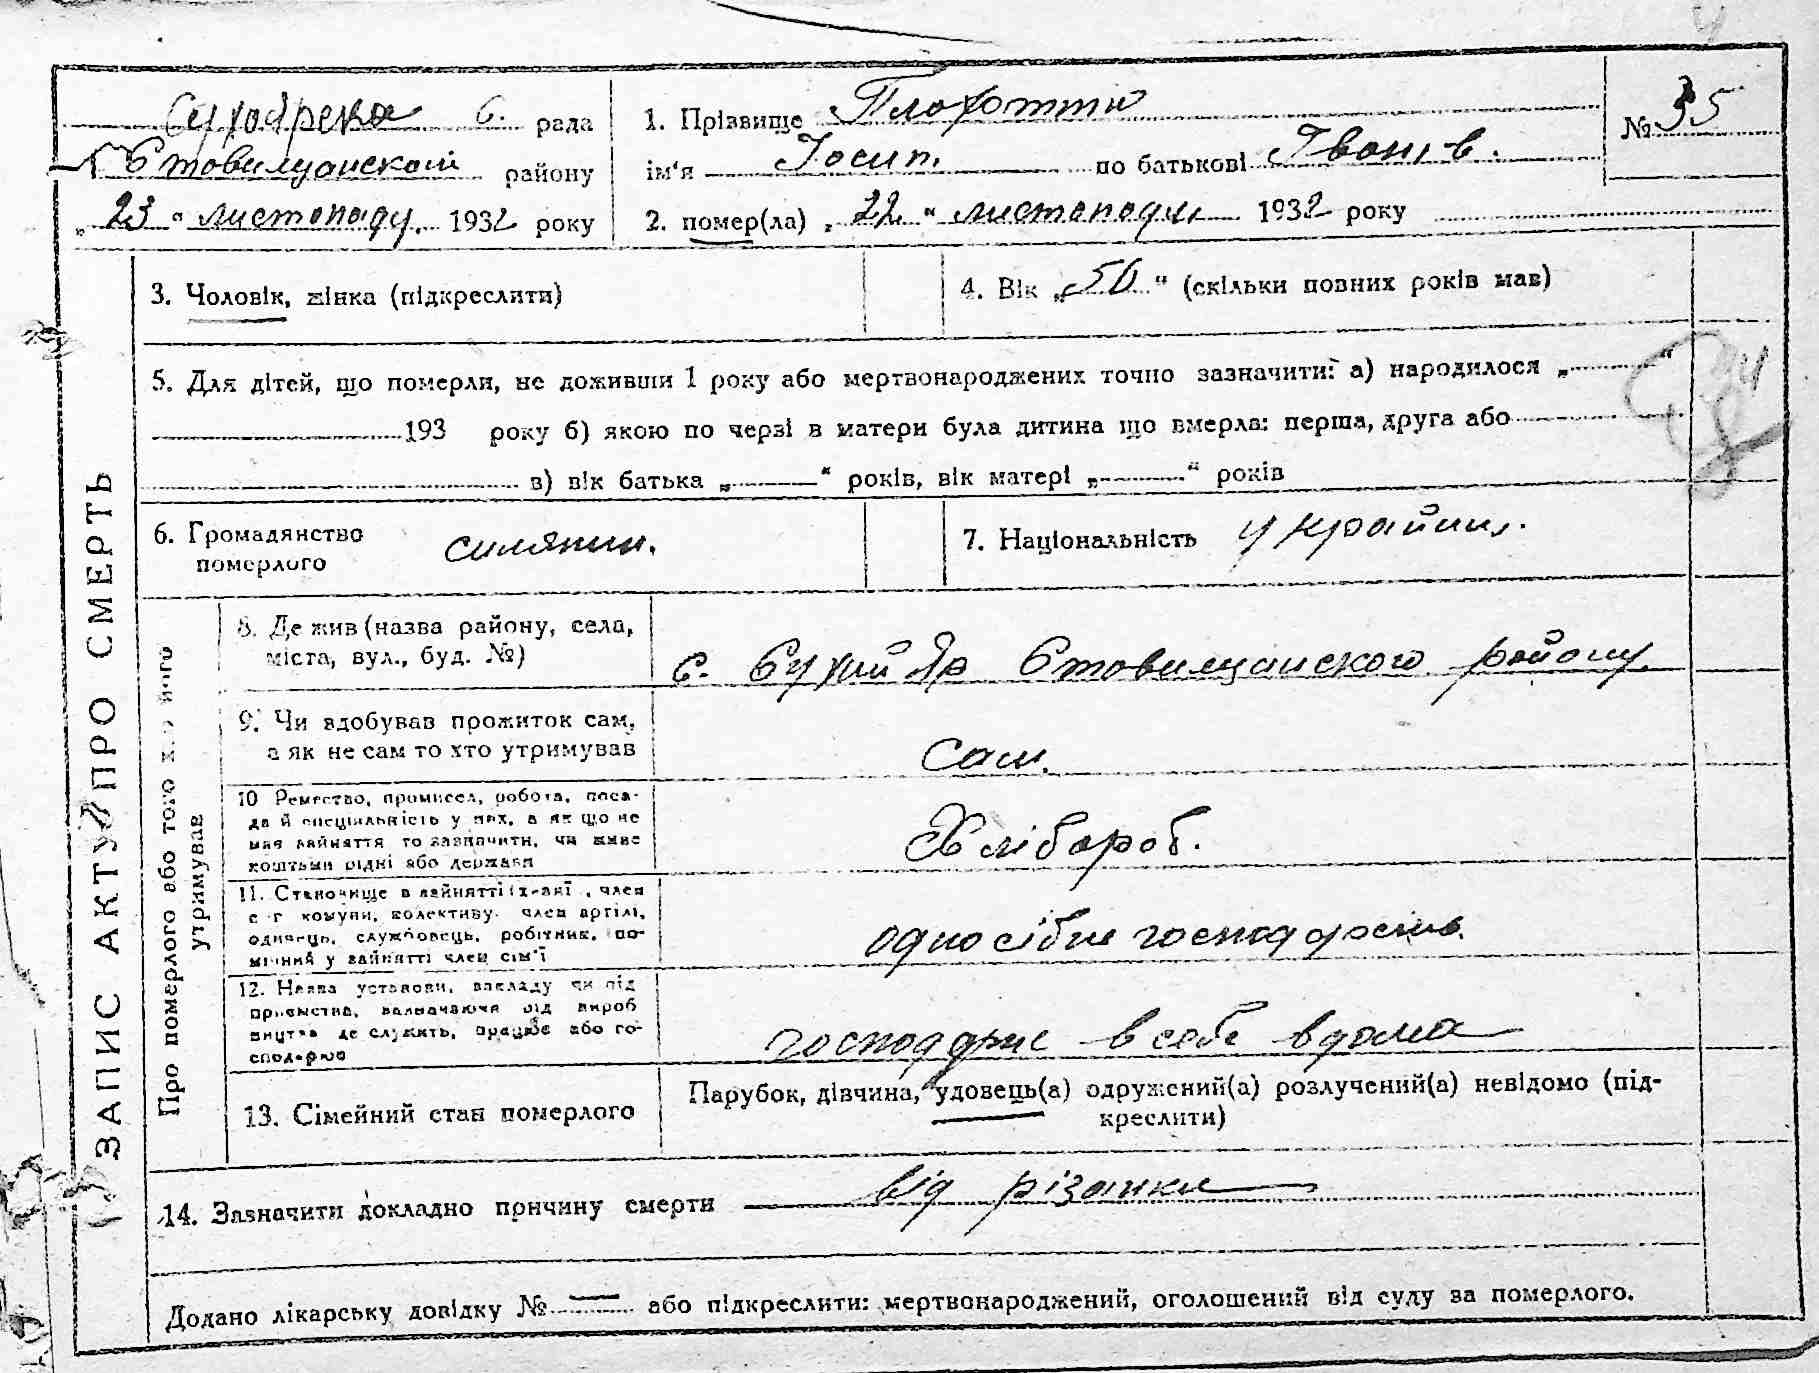 Сухоярска с. рада
Ставищанський району
„23“ листопаду 1932 року
1. Прізвище Плохотти
ім'я Йосип. по батькові Іванів.
2. помер(ла) „22“ листопаду 1932 року
№ 35
ЗАПИС АКТУ ПРО СМЕРТЬ
3. Чоловік, жінка (підкреслити)
4. Вік „50“ (скільки повних років мав)
5. Для дітей, що померли, не доживши 1 року або мертвонароджених точно зазначити: а) народилося „ “
193 року б) якою по черзі в матери була дитина що вмерла: перша, друга або
в) вік батька „ “ років, вік матері „ “ років
6. Громадянство
померлого
силянин.
7. Національність украйин.
Про померлого або того хто його
утримував
8. Де жив (назва району, села,
міста, вул., буд. №)
с. Сухий Яр Ставищанского району.
9. Чи здобував прожиток сам,
а як не сам то хто утримував
Сам.
10 Ремество, промисел, робота, поса-
да й спеціяльність у них, а як що не
мав зайняття то зазначити, чи живе
коштами рідні або держави
Хлібороб.
11. Становище в зайнятті (хазяї, член
с-г комуни, колективу, член артілі,
одинець, службовець, робітник, по-
мічний у зайнятті член сім'ї
односібне господарство.
12. Назва установи, закладу чи під
приємства, зазначаючи від вироб
ництва де служить, працює або го-
сподарює
господарює в себе вдома
13. Сімейний стан померлого
Парубок, дівчина, удовець(а) одружений(а) розлучений(а) невідомо (під-
креслити)
14. Зазначити докладно причину смерти від різачки
Додано лікарську довідку № — або підкреслити: мертвонароджений, оголошений від суду за померлого.